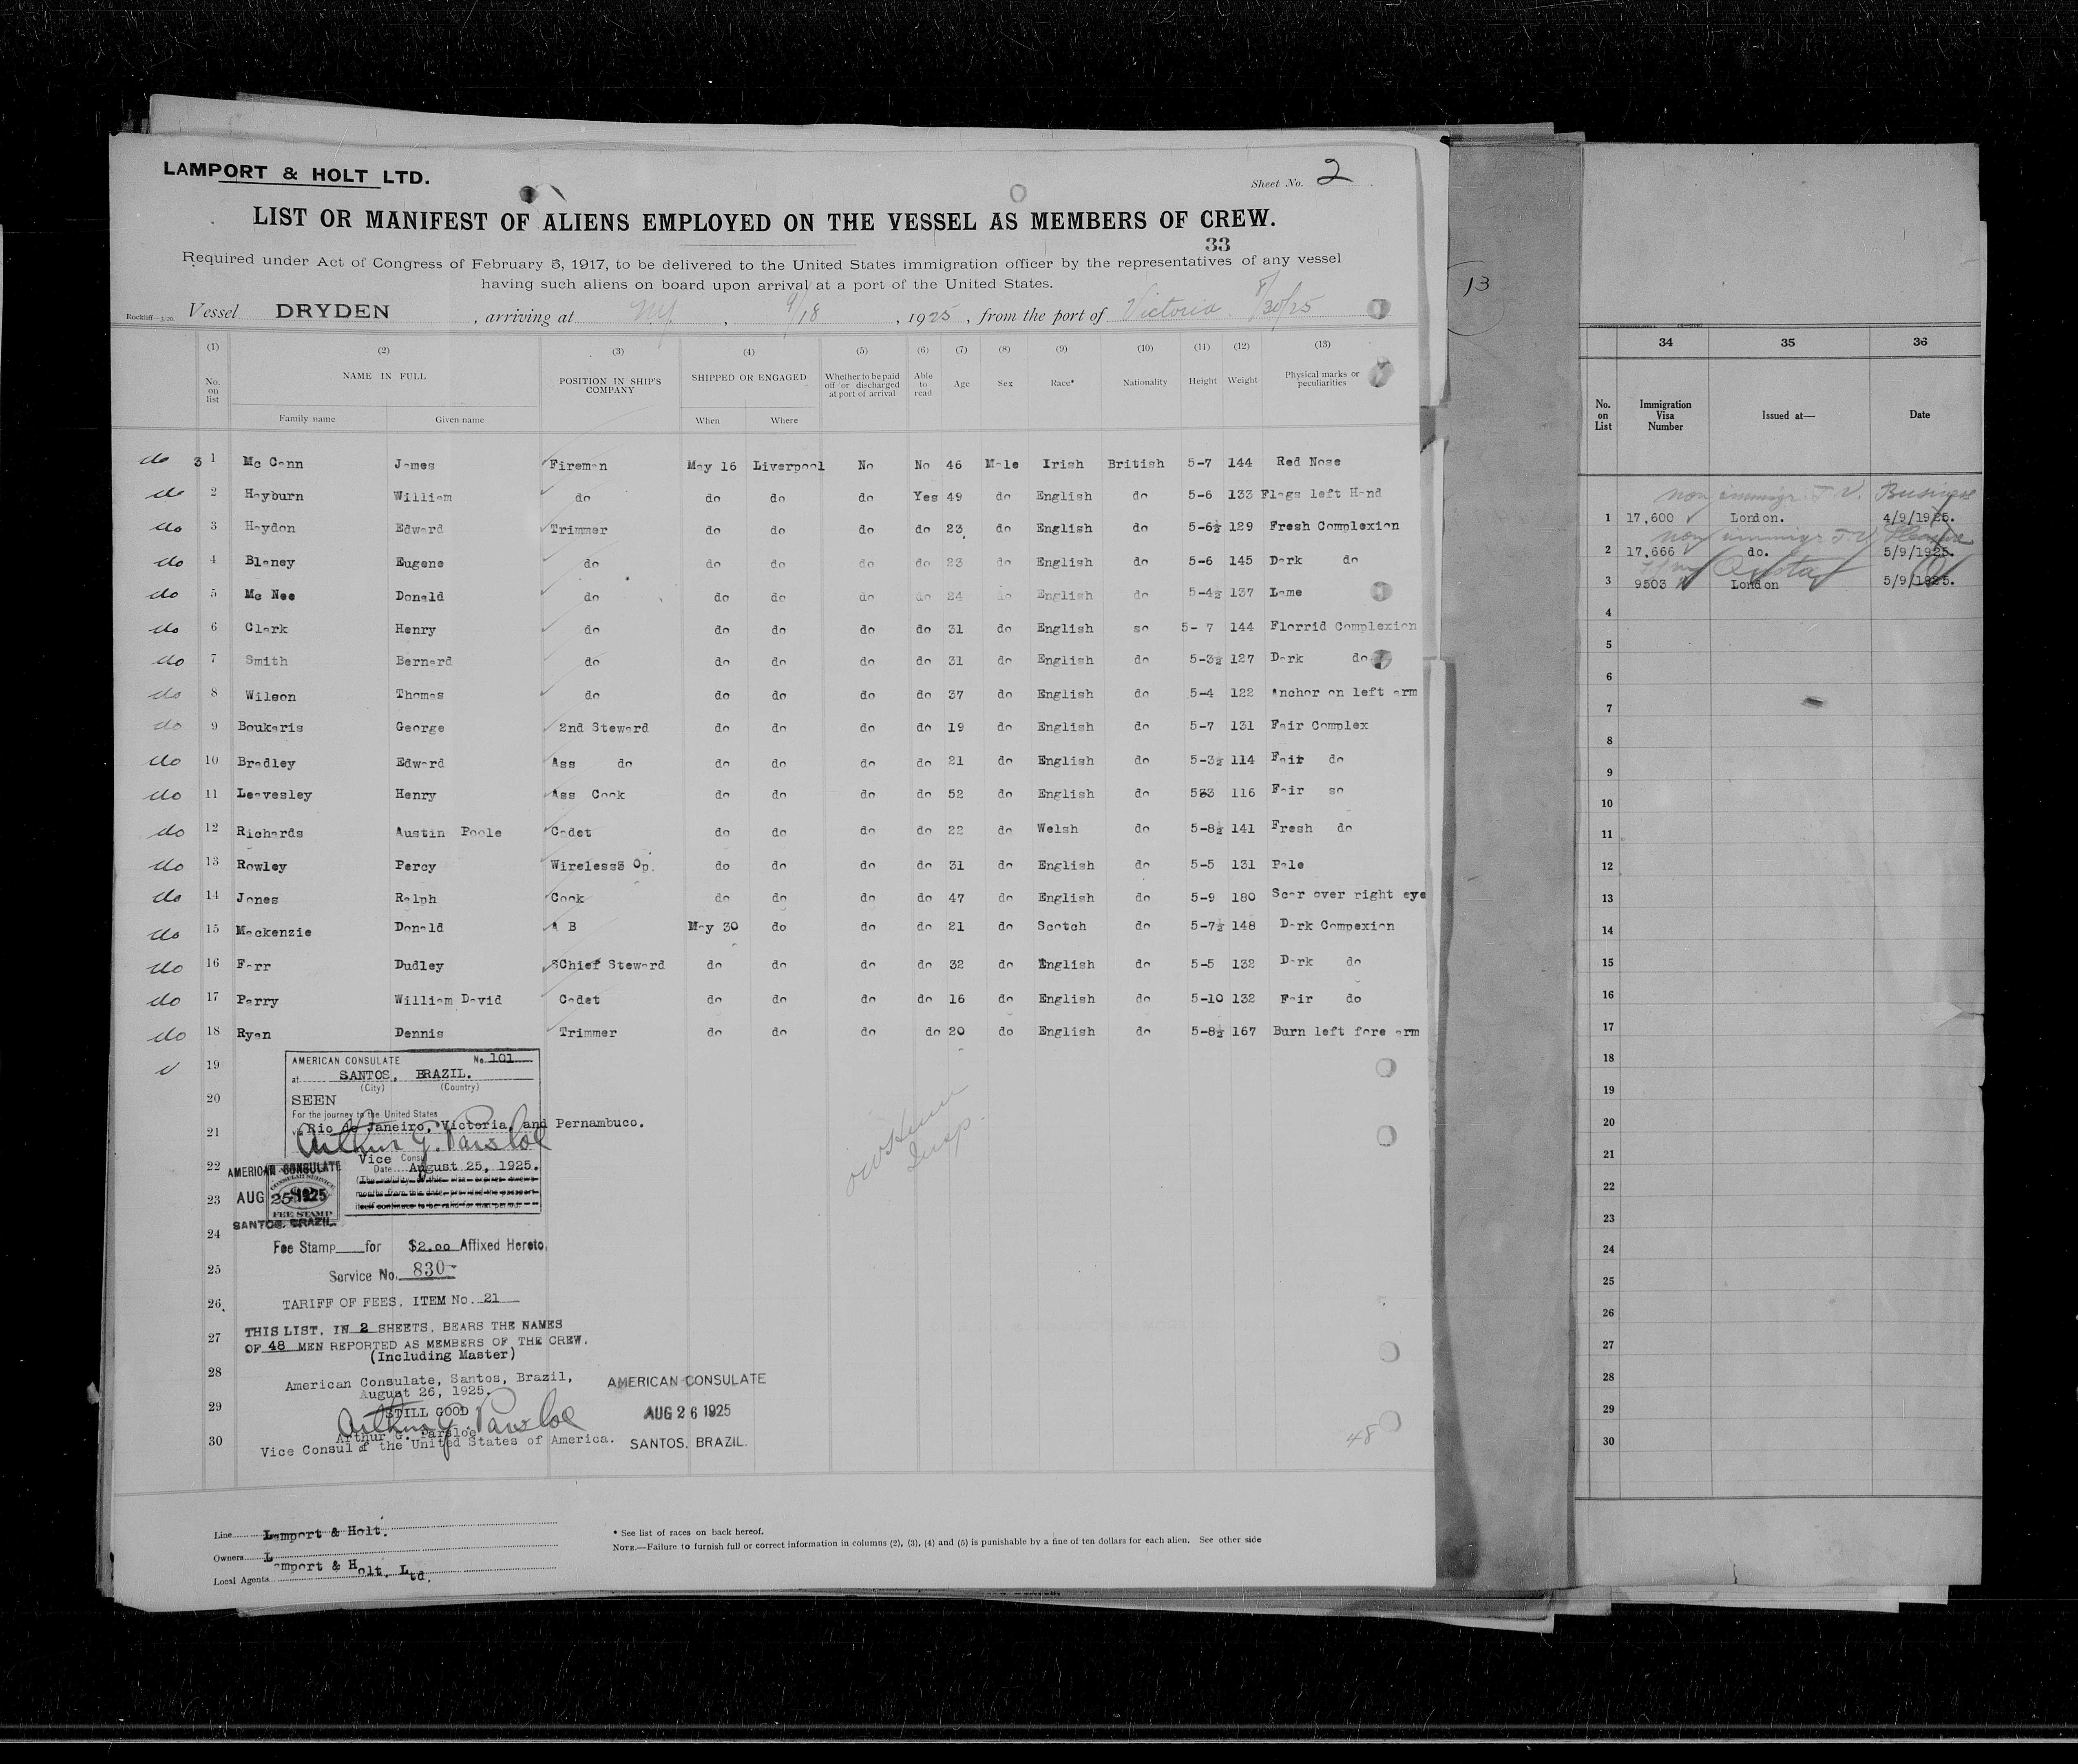 LAMPORT & HOLT LTD.
Sheet No. 2
LIST OR MANIFEST OF ALIENS EMPLOYED ON THE VESSEL AS MEMBERS OF CREW.
33
Required under Act of Congress of February 5, 1917, to be delivered to the United States immigration officer by the representatives of any vessel
having such aliens on board upon arrival at a port of the United States.
Vessel DRYDEN , arriving at N.Y. , 9/18 , 1925 , from the port of Victoria 8/30/25
(1) (2) (3) (4) (5) (6) (7) (8) (9) (10) (11) (12) (13)
No. on list NAME IN FULL POSITION IN SHIP'S COMPANY SHIPPED OR ENGAGED Whether to be paid off or discharged at port of arrival Able to read Age Sex Race* Nationality Height Weight Physical marks or peculiarities
Family name Given name When Where
do 3 1 Mc Cann James Fireman May 16 Liverpool No No 46 Male Irish British 5-7 144 Red Nose
do 2 Hayburn William do do do do Yes 49 do English do 5-6 133 Flags left Hand
do 3 Haydon Edward Trimmer do do do do 23 do English do 5-6½ 129 Fresh Complexion
do 4 Blaney Eugene do do do do do 23 do English do 5-6 145 Dark do
do 5 Mc Nee Donald do do do do do 24 do English do 5-4½ 137 Lame
do 6 Clark Henry do do do do do 31 do English so 5- 7 144 Florrid Complexion
do 7 Smith Bernard do do do do do 31 do English do 5-3½ 127 Dark do
do 8 Wilson Thomas do do do do do 37 do English do 5-4 122 Anchor on left arm
do 9 Boukaris George 2nd Steward do do do do 19 do English do 5-7 131 Fair Complex
do 10 Bradley Edward Ass do do do do do 21 do English do 5-3½ 114 Fair do
do 11 Leavesley Henry Ass Cook do do do do 52 do English do 5-3 116 Fair so
do 12 Richards Austin Poole Cadet do do do do 22 do Welsh do 5-8½ 141 Fresh do
do 13 Rowley Percy Wireless Op. do do do do 31 do English do 5-5 131 Pale
do 14 Jones Ralph Cook do do do do 47 do English do 5-9 180 Scar over right eye
do 15 Mackenzie Donald A B May 30 do do do 21 do Scotch do 5-7½ 148 Dark Compexion
do 16 Farr Dudley SChief Steward do do do do 32 do English do 5-5 132 Dark do
do 17 Parry William David Cadet do do do do 16 do English do 5-10 132 Fair do
do 18 Ryan Dennis Trimmer do do do do 20 do English do 5-8½ 167 Burn left fore arm
19
20
21
22
23
24
25
26
27
28
29
30
AMERICAN CONSULATE No. 101
at SANTOS, BRAZIL.
(City) (Country)
SEEN
For the journey to the United States
via Rio de Janeiro, Victoria, and Pernambuco.
Arthur G. Parsloe
Vice Consul
Date August 25, 1925.
AMERICAN CONSULATE
AUG 25 1925
SANTOS, BRAZIL.
CONSULAR SERVICE
FEE STAMP
Fee Stamp for $2.00 Affixed Hereto
Service No. 830
TARIFF OF FEES, ITEM No. 21
THIS LIST, IN 2 SHEETS, BEARS THE NAMES
OF 48 MEN REPORTED AS MEMBERS OF THE CREW.
(Including Master)
American Consulate, Santos, Brazil,
August 26, 1925.
STILL GOOD
Arthur G. Parsloe
Arthur G. Parsloe
Vice Consul of the United States of America.
AMERICAN CONSULATE
AUG 26 1925
SANTOS, BRAZIL.
48
Line Lamport & Holt.
Owners L
Local Agents amport & Holt, Ltd.
* See list of races on back hereof.
NOTE.—Failure to furnish full or correct information in columns (2), (3), (4) and (5) is punishable by a fine of ten dollars for each alien. See other side
13
34 35 36
No. on List Immigration Visa Number Issued at— Date
non immigr T.V. Business
1 17,600 London. 4/9/1925.
non immigr T.V. Pleasure
2 17,666 do. 5/9/1925.
Quota
3 9503 London 5/9/1925.
4
5
6
7
8
9
10
11
12
13
14
15
16
17
18
19
20
21
22
23
24
25
26
27
28
29
30